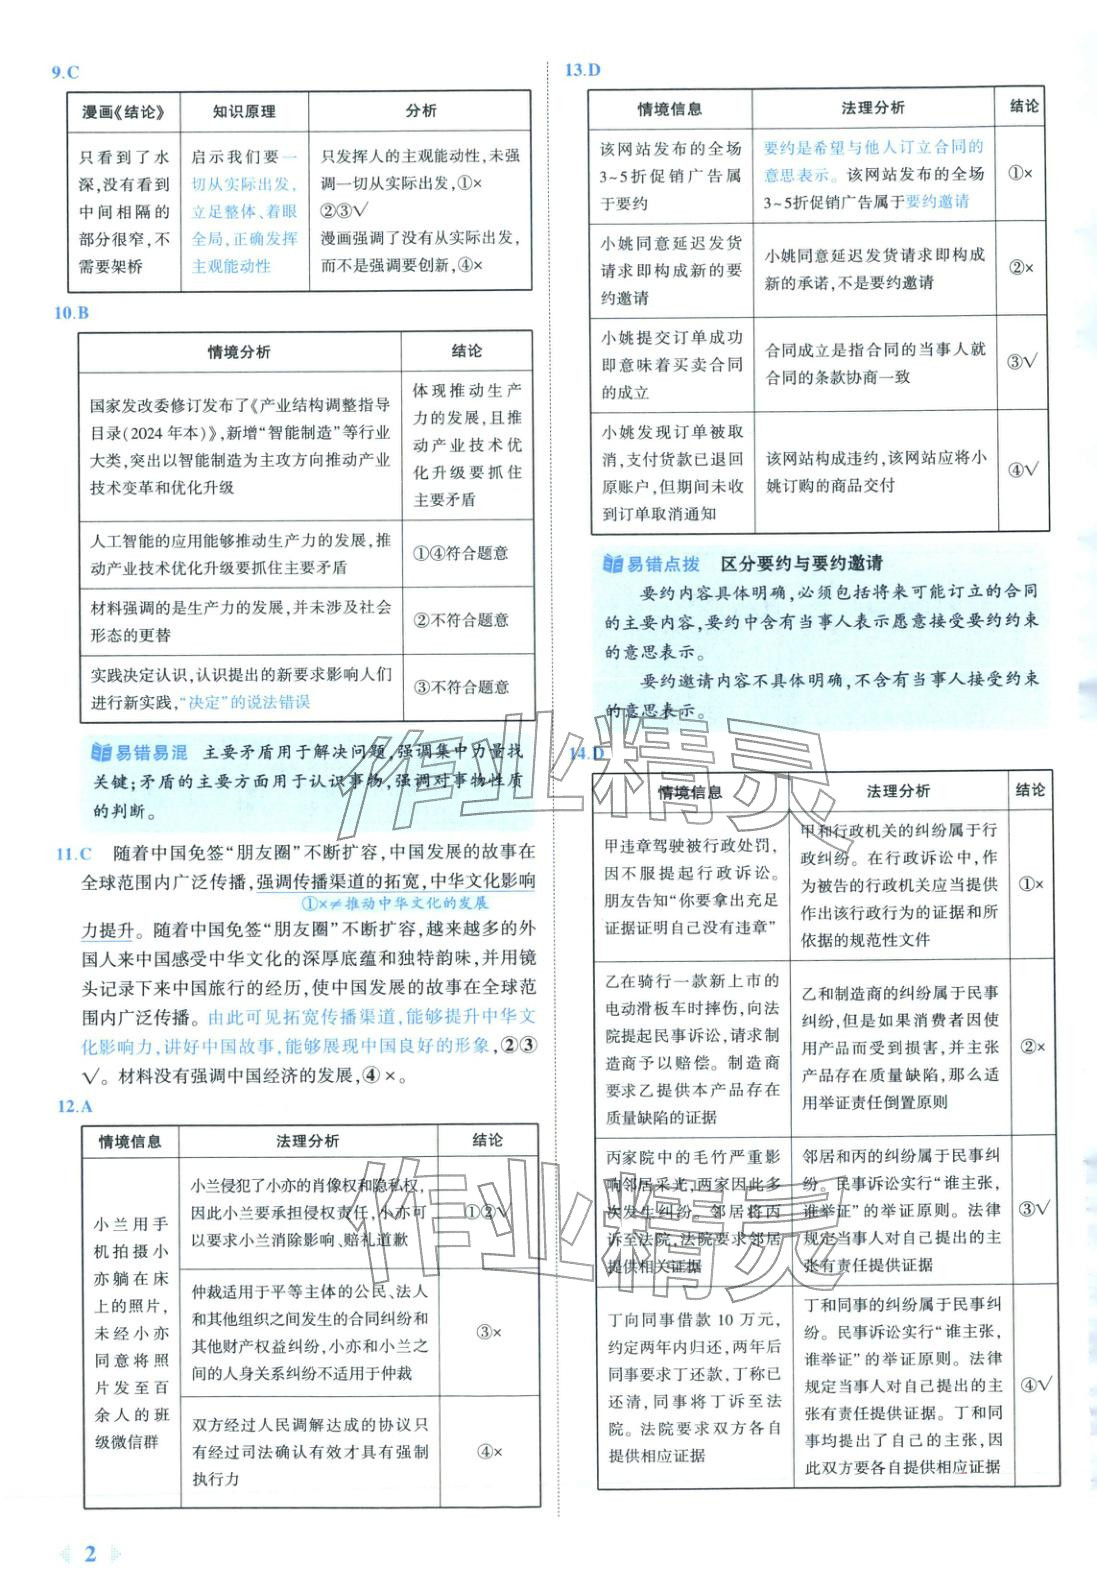 9.C
漫画《结论》 知识原理 分析
只看到了水
深,没有看到
中间相隔的
部分很窄,不
需要架桥
启示我们要一
切从实际出发,
立足整体、着眼
全局,正确发挥
主观能动性
只发挥人的主观能动性,未强
调一切从实际出发,①×
②③√
漫画强调了没有从实际出发,
而不是强调要创新,④×
10.B
情境分析 结论
国家发改委修订发布了《产业结构调整指导
目录(2024年本)》,新增“智能制造”等行业
大类,突出以智能制造为主攻方向推动产业
技术变革和优化升级
体现推动生产
力的发展,且推
动产业技术优
化升级要抓住
主要矛盾
人工智能的应用能够推动生产力的发展,推
动产业技术优化升级要抓住主要矛盾
①④符合题意
材料强调的是生产力的发展,并未涉及社会
形态的更替
②不符合题意
实践决定认识,认识提出的新要求影响人们
进行新实践,“决定”的说法错误
③不符合题意
易错易混 主要矛盾用于解决问题,强调集中力量找
关键;矛盾的主要方面用于认识事物,强调对事物性质
的判断。
11.C 随着中国免签“朋友圈”不断扩容,中国发展的故事在
全球范围内广泛传播,强调传播渠道的拓宽,中华文化影响
①×≠推动中华文化的发展
力提升。随着中国免签“朋友圈”不断扩容,越来越多的外
国人来中国感受中华文化的深厚底蕴和独特韵味,并用镜
头记录下来中国旅行的经历,使中国发展的故事在全球范
围内广泛传播。由此可见拓宽传播渠道,能够提升中华文
化影响力,讲好中国故事,能够展现中国良好的形象,②③
√。材料没有强调中国经济的发展,④×。
12.A
情境信息 法理分析 结论
小兰用手
机拍摄小
亦躺在床
上的照片,
未经小亦
同意将照
片发至百
余人的班
级微信群
小兰侵犯了小亦的肖像权和隐私权,
因此小兰要承担侵权责任,小亦可
以要求小兰消除影响、赔礼道歉
①②√
仲裁适用于平等主体的公民、法人
和其他组织之间发生的合同纠纷和
其他财产权益纠纷,小亦和小兰之
间的人身关系纠纷不适用于仲裁
③×
双方经过人民调解达成的协议只
有经过司法确认有效才具有强制
执行力
④×
2
13.D
情境信息 法理分析 结论
该网站发布的全场
3~5折促销广告属
于要约
要约是希望与他人订立合同的
意思表示。该网站发布的全场
3~5折促销广告属于要约邀请
①×
小姚同意延迟发货
请求即构成新的要
约邀请
小姚同意延迟发货请求即构成
新的承诺,不是要约邀请
②×
小姚提交订单成功
即意味着买卖合同
的成立
合同成立是指合同的当事人就
合同的条款协商一致
③√
小姚发现订单被取
消,支付货款已退回
原账户,但期间未收
到订单取消通知
该网站构成违约,该网站应将小
姚订购的商品交付
④√
易错点拨 区分要约与要约邀请
要约内容具体明确,必须包括将来可能订立的合同
的主要内容,要约中含有当事人表示愿意接受要约约束
的意思表示。
要约邀请内容不具体明确,不含有当事人接受约束
的意思表示。
14.D
情境信息 法理分析 结论
甲违章驾驶被行政处罚,
因不服提起行政诉讼。
朋友告知“你要拿出充足
证据证明自己没有违章”
甲和行政机关的纠纷属于行
政纠纷。在行政诉讼中,作
为被告的行政机关应当提供
作出该行政行为的证据和所
依据的规范性文件
①×
乙在骑行一款新上市的
电动滑板车时摔伤,向法
院提起民事诉讼,请求制
造商予以赔偿。制造商
要求乙提供本产品存在
质量缺陷的证据
乙和制造商的纠纷属于民事
纠纷,但是如果消费者因使
用产品而受到损害,并主张
产品存在质量缺陷,那么适
用举证责任倒置原则
②×
丙家院中的毛竹严重影
响邻居采光,两家因此多
次发生纠纷。邻居将丙
诉至法院,法院要求邻居
提供相关证据
邻居和丙的纠纷属于民事纠
纷。民事诉讼实行“谁主张,
谁举证”的举证原则。法律
规定当事人对自己提出的主
张有责任提供证据
③√
丁向同事借款10万元,
约定两年内归还,两年后
同事要求丁还款,丁称已
还清,同事将丁诉至法
院。法院要求双方各自
提供相应证据
丁和同事的纠纷属于民事纠
纷。民事诉讼实行“谁主张,
谁举证”的举证原则。法律
规定当事人对自己提出的主
张有责任提供证据。丁和同
事均提出了自己的主张,因
此双方要各自提供相应证据
④√
作业精灵
作业精灵